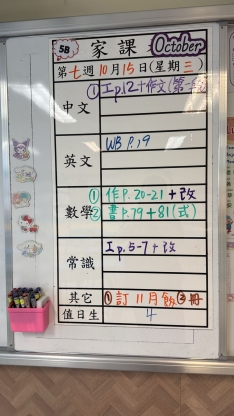 5B 家課 October
第七週10月15日(星期三)
中文 ① I p.12+作文(第一
英文 WB P.19
數學 ① 作P.20-21+改
② 書P.79+81(式)
常識 I p.5-7+改
其它 ① 訂11月飯 ③冊
值日生 4